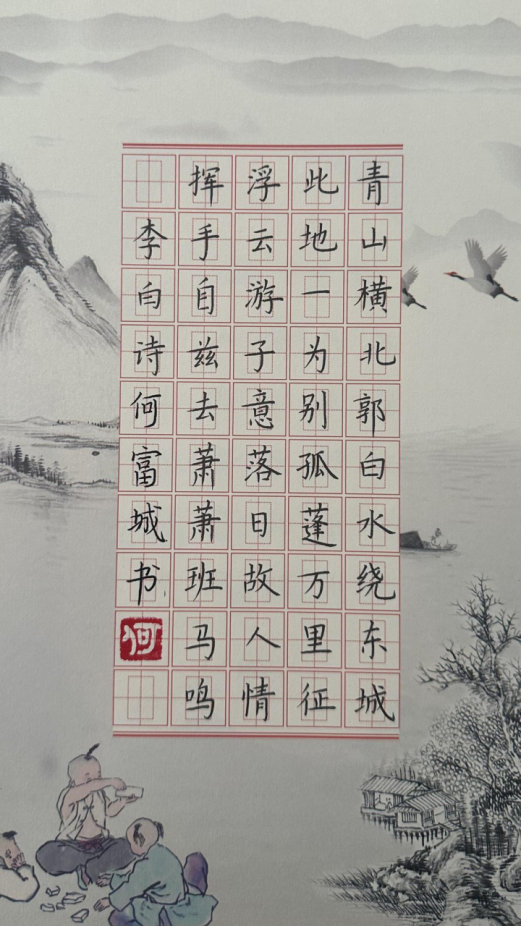 青山横北郭白水绕东城
此地一为别孤蓬万里征
浮云游子意落日故人情
挥手自兹去萧萧班马鸣
李白诗何富城书
何